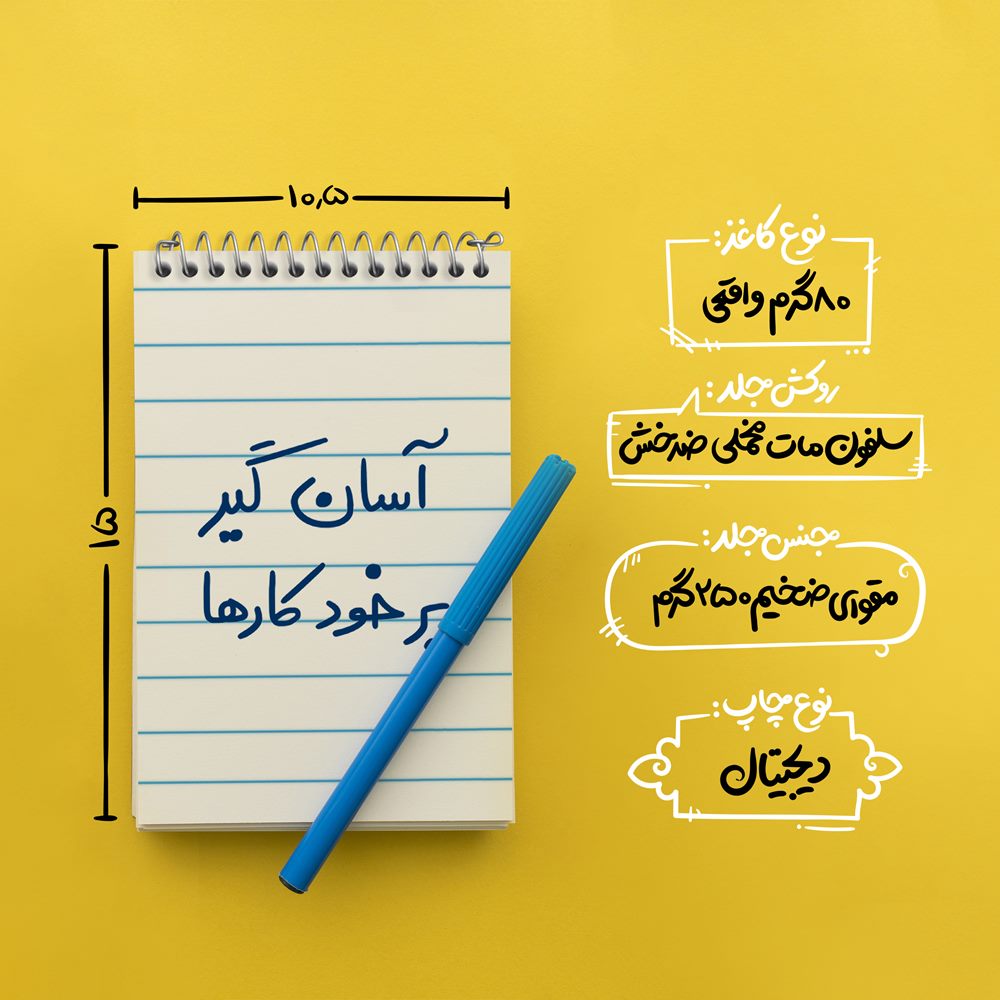 ۱۰٫۵
۱۵
آسان گیر
بر خود کارها
نوع کاغذ:
۸۰ گرم واقعی
روکش جلد:
سلفون مات مخملی ضدخش
جنس جلد:
مقوای ضخیم ۲۵۰ گرم
نوع چاپ:
دیجیتال